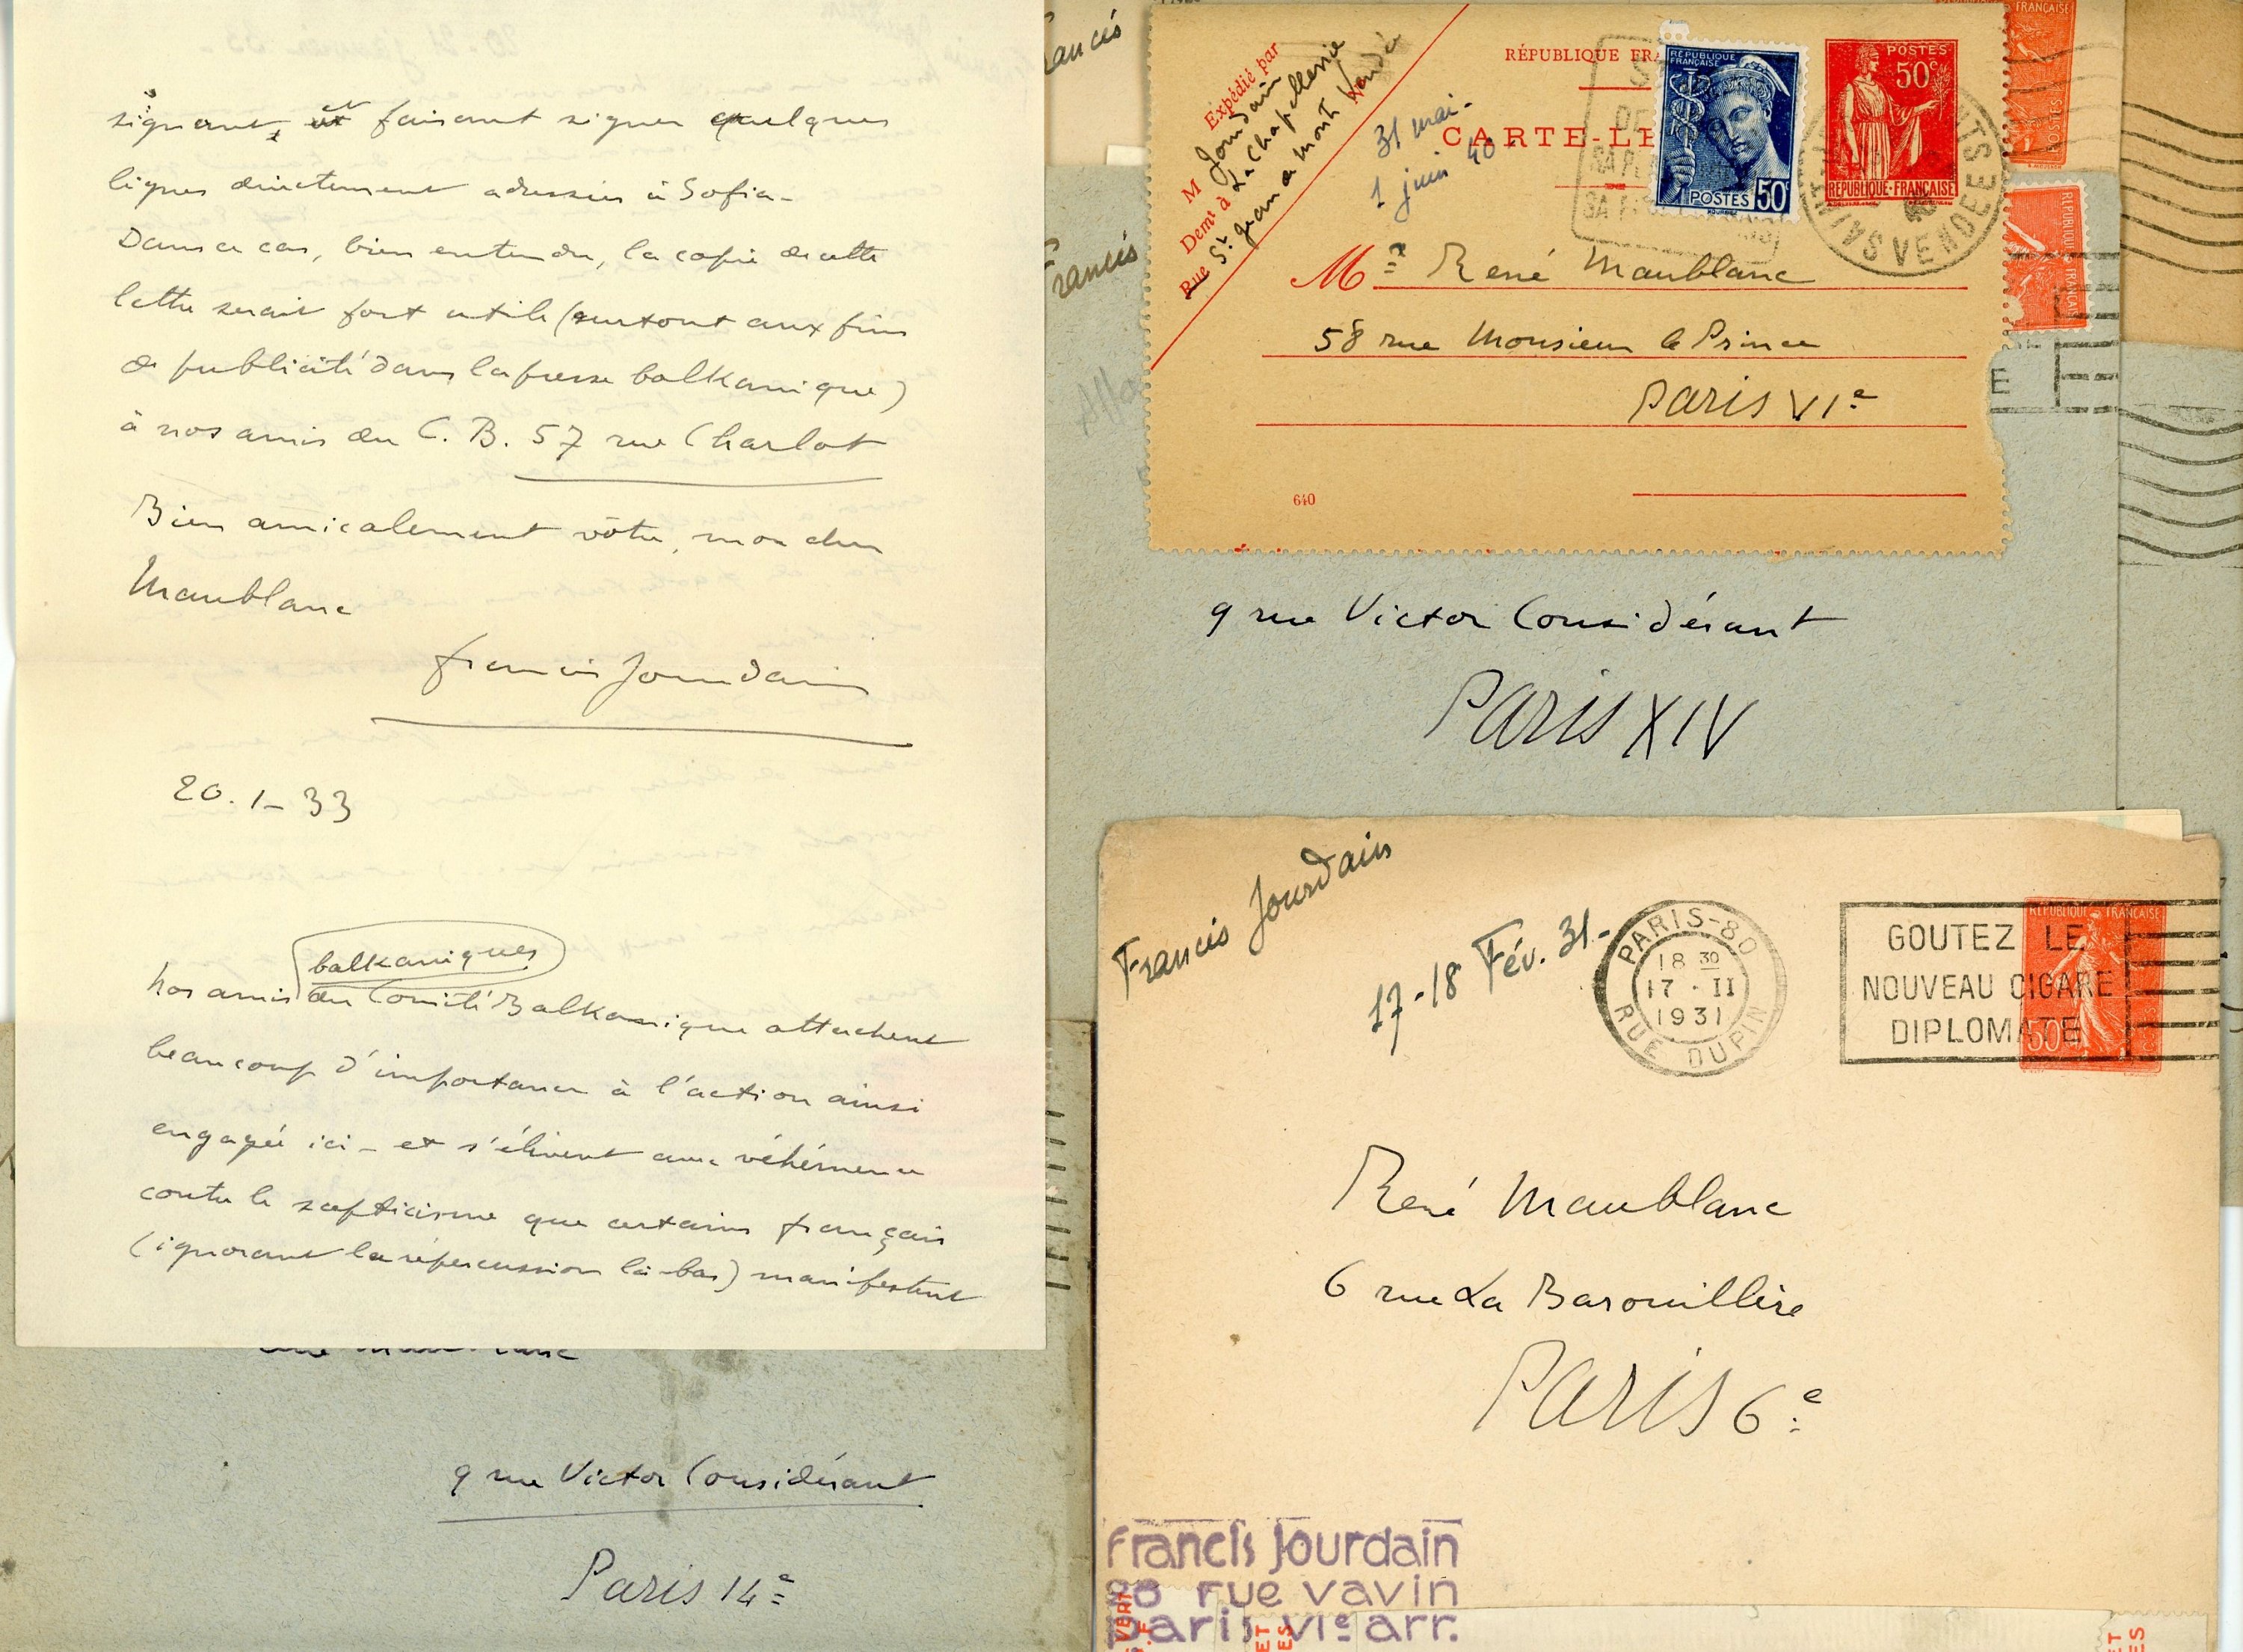 signant, et faisant signer quelques
lignes directement adressées à Sofia-
Dans ce cas, bien entendu, la copie de cette
lettre serait fort utile (surtout aux fins
de publicité dans la presse balkanique)
à nos amis du C. B. 57 rue Charlot
Bien amicalement vôtre, mon cher
Maublanc
Francis Jourdain
20.1-33
balkaniques
Nos amis du Comité Balkanique attachent
beaucoup d'importance à l'action ainsi
engagée ici - et s'élèvent avec véhémence
contre le scepticisme que certains français
(ignorant la répercussion là-bas) manifestent
9 rue Victor Considérant
Paris 14e
Francis
Francis
Expédié par
M Jourdain
Demt à La Chapellerie
Rue St Jean de Mont Vendée
31 mai-
1 juin 40
RÉPUBLIQUE FRA
CARTE-LE
RÉPUBLIQUE FRANÇAISE
POSTES 50c
POSTES 50c
RÉPUBLIQUE-FRANÇAISE
VENDEE
Mr René Maublanc
58 rue Monsieur le Prince
Paris VIe
640
9 rue Victor Considérant
Paris XIV
FRANÇAISE
Francis Jourdain
17-18 Fév. 31-
PARIS-80
18 30
17 · II
1931
RUE DUPIN
GOUTEZ LE
NOUVEAU CIGARE
DIPLOMATE
RÉPUBLIQUE FRANÇAISE
50c
René Maublanc
6 rue La Barouillère
Paris 6e
Francis Jourdain
rue vavin
paris VIe arr.